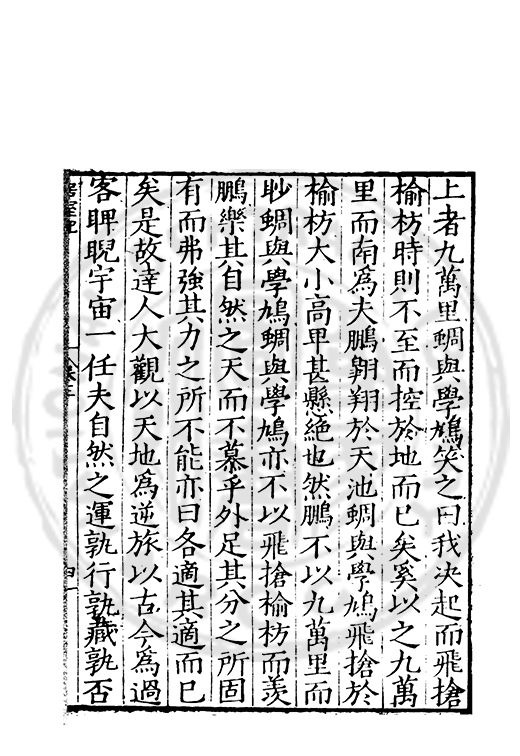 上者九萬里蜩與學鳩笑之曰我决起而飛搶
榆枋時則不至而控於地而已矣奚以之九萬
里而南為夫鵬翱翔於天池蜩與學鳩飛搶於
榆枋大小高卑甚懸絕也然鵬不以九萬里而
眇蜩與學鳩蜩與學鳩亦不以飛搶榆枋而羨
鵬樂其自然之天而不慕乎外足其分之所固
有而弗強其力之所不能亦曰各適其適而已
矣是故達人大觀以天地為逆旅以古今為過
客睥睨宇宙一任夫自然之運孰行孰藏孰否